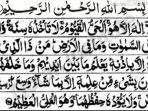 بسم الله الرحمن الرحيم
الله لا إله إلا هو الحي القيوم لا تأخذه سنة ولا
السموت وما في الأرض من ذا الذي
إلا بإذنه يعلم ما بين أيديهم وما خلفهم
بشيء من علمه إلا بما شاء وسع كرسيه
ولا يئوده حفظهما وهو العلي العظيم